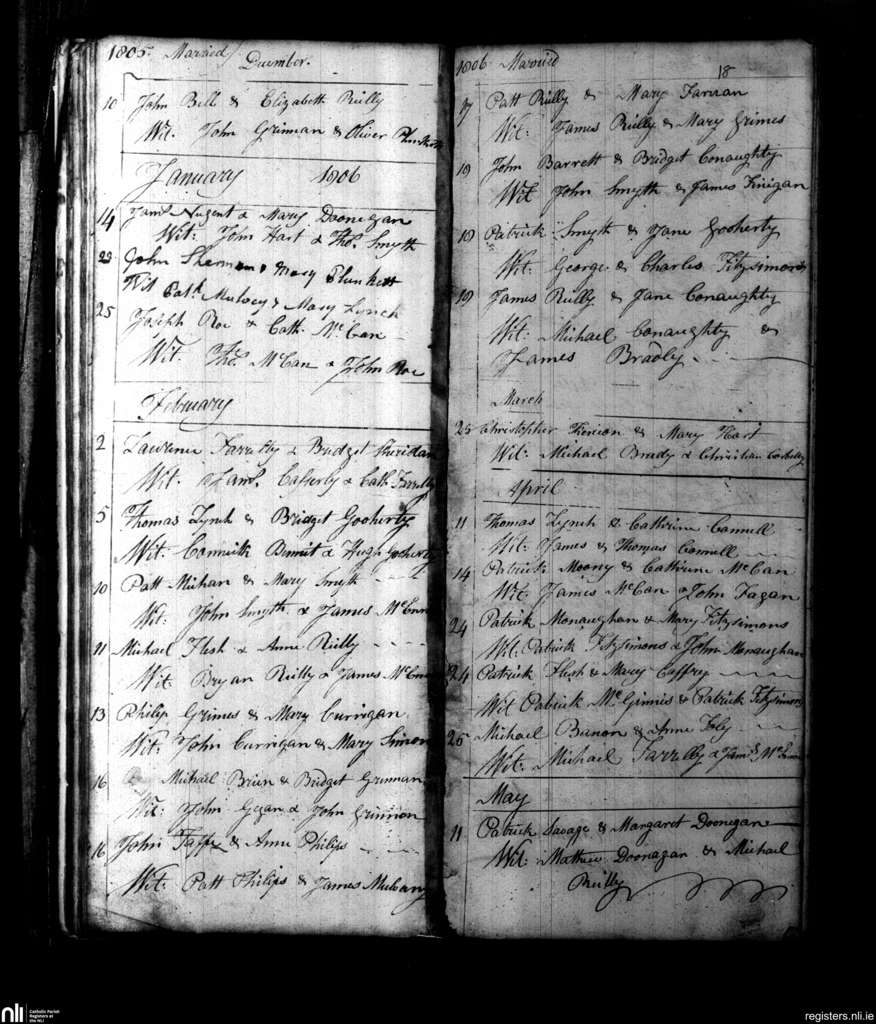 1805. Married
December.
10 John Bell & Elizabeth Reilly
Wit. John Grinnan & Oliver
January 1806
14 Jams. Nugent & Mary Doonegan
Wit: John Hart & Thos. Smyth
23 John Sherman & Mary Plunkett
Wit Patk. Mulvey & Mary Lynch
25 Joseph Roe & Cath. McCan
Wit. Thos. McCan & John Roe
February
2 Laurence Farrelly & Bridget Sheridan
Wit. Jams. Cafferty & Cath. Farrelly
5 Thomas Lynch & Bridget Gooherty
Wit: Connick Bennit & Hugh Gooherty
10 Patt Michan & Mary Smyth
Wit: John Smyth & James
11 Michael Flesh & Anne Reilly
Wit: Bryan Reilly & James
13 Philip Grimes & Mary Currigan
Wit: John Currigan & Mary Simon
16 Michael Brien & Bridget Grinnan
Wit: John Gegan & John Grinnon
16 John Taffe & Anne Philips
Wit: Patt Philips & James Mulvany
1806 Married 18
17 Patt Reilly & Mary Farnan
Wit: James Reilly & Mary Grimes
19 John Barrett & Bridget Conaughty
Wit John Smyth & James Finigan
19 Patrick Smyth & Jane Gooherty
Wit: George & Charles Fitzsimons
19 James Reilly & Jane Conaughty
Wit: Michael Conaughty &
James Bradly
March
25 Christopher Kenion & Mary Hart
Wit: Michael Brady & Christian
April
11 Thomas Lynch & Cathrine Connell
Wit: James & Thomas Connell
14 Patrick Moony & Cathrine McCan
Wit: James McCan & John Fagan
24 Patrick Monaughan & Mary Fitzsimons
Wit: Patrick Fitzsimons & John Monaughan
24 Patrick Flesh & Mary Caffry
Wit Patrick McGinnis & Patrick Fitzsimons
25 Michael Banon & Anne Foly
Wit: Michael Farrelly & Jams.
May
11 Patrick Savage & Margaret Doonegan
Wit: Mathew Doonagan & Michael
Reilly
nli Catholic Parish
Registers at
the NLI
registers.nli.ie